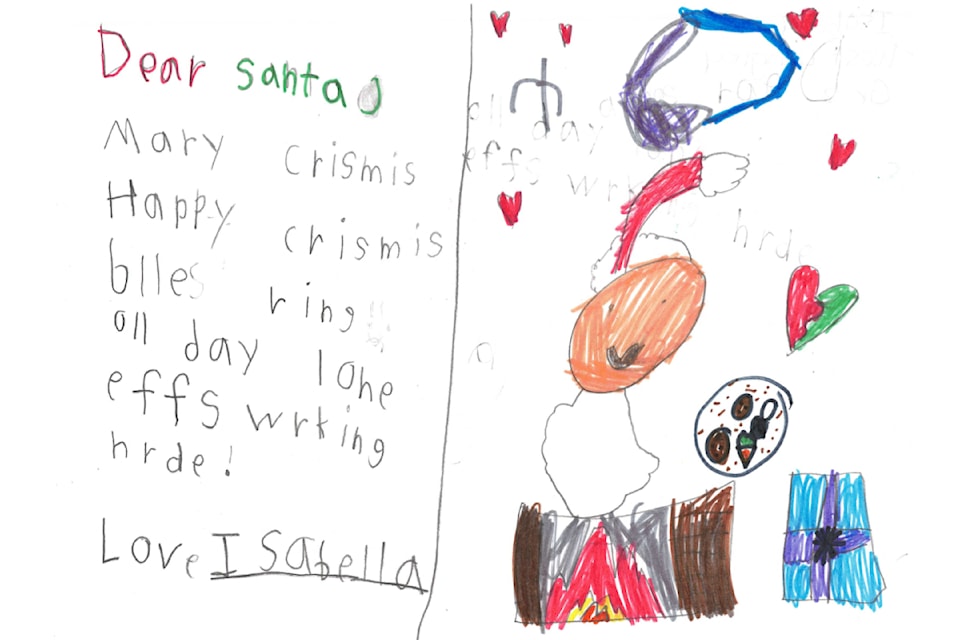 Dear santa
Mary crismis
Happy crismis
blles ring
oll day lone
effs wrking
hrde!
Love Isabella